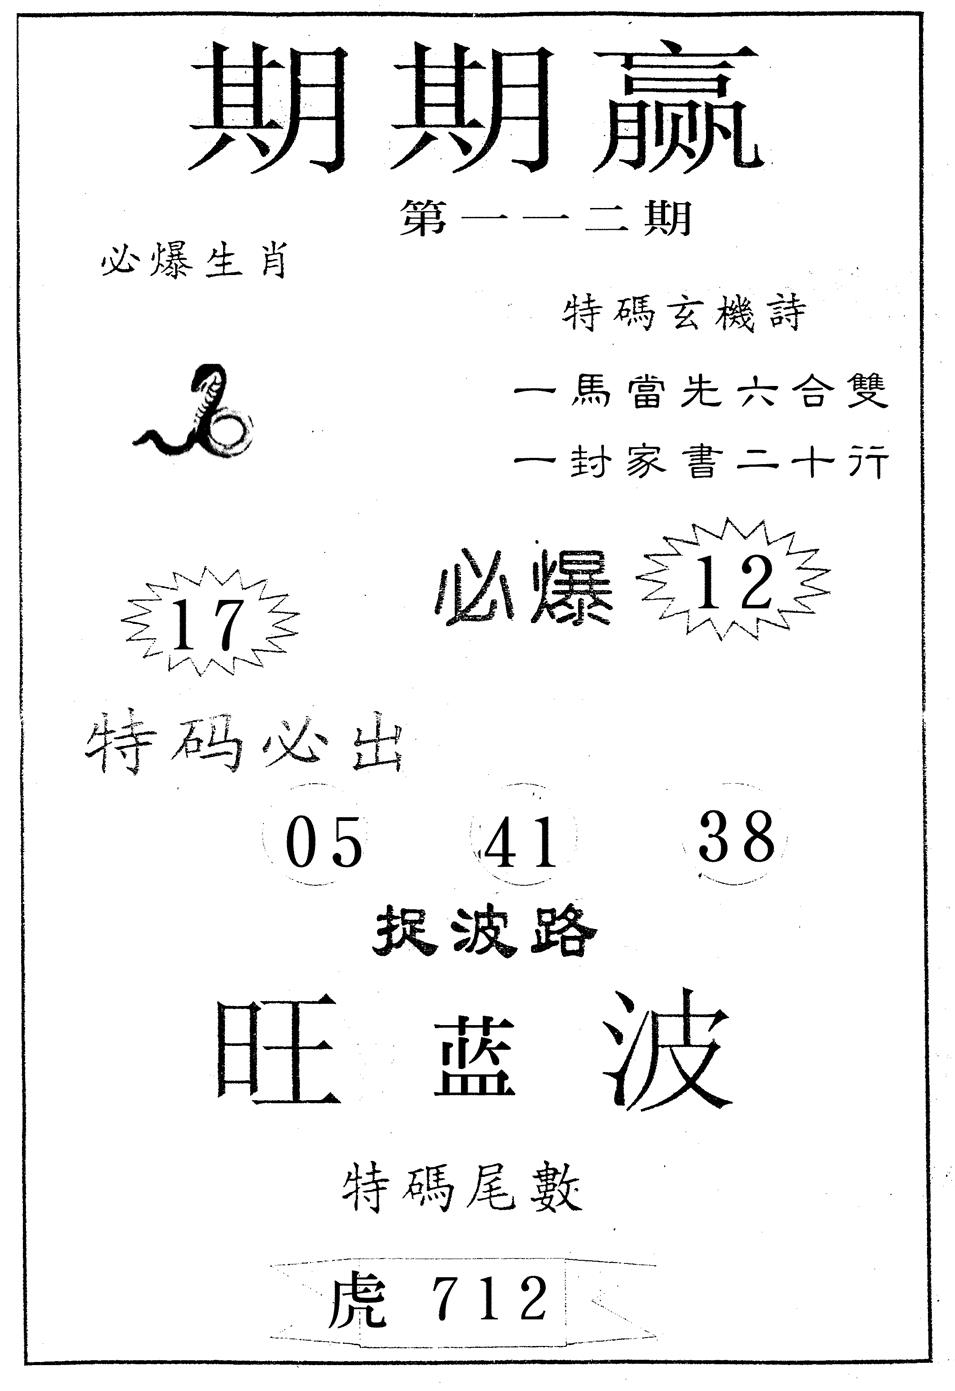 期期赢
第一一二期
必爆生肖
特碼玄機詩
一馬當先六合雙
一封家書二十行
必爆 12
17
特码必出
05 41 38
捉波路
旺蓝波
特碼尾數
虎 712